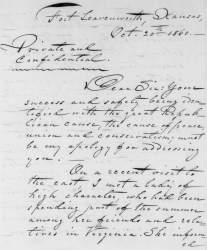 Fort Leavenworth, Kansas,
Oct. 20th 1860.
Private and
Confidential.
Dear Sir: Your
success and safety being iden-
tified with the great Repub-
lican cause, the cause of peace,
union and conservatism, must
be my apology for addressing
you.
On a recent visit to
the east, I met a lady of
high character, who had been
spending part of the summer
among her friends and rela-
tives in Virginia. She inform-
ed